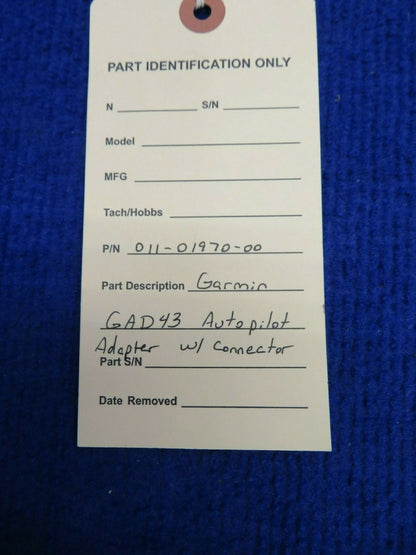 PART IDENTIFICATION ONLY
N S/N
Model
MFG
Tach/Hobbs
P/N 011-01970-00
Part Description Garmin
GAD43 Autopilot
Adapter w/ connector
Part S/N
Date Removed